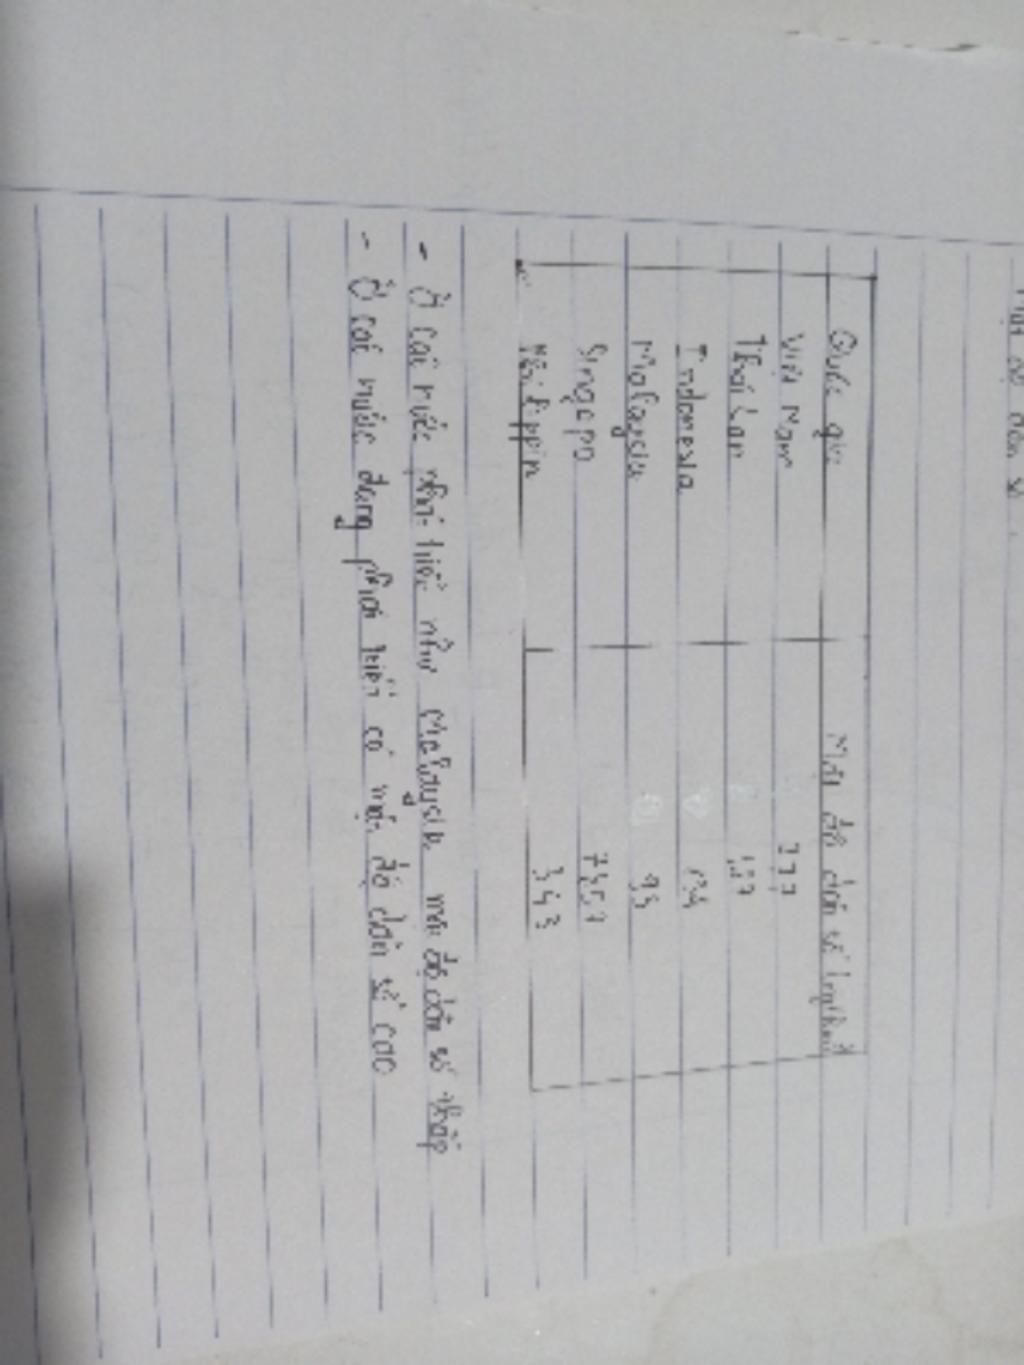 Mật độ dân số
Quốc gia Mật độ dân số (ng/km²)
Việt Nam
Thái Lan 137
Indonesia
Malaysia 95
Singapo
Philippin 343
- Ở các nước phát triển như Malaysia mật độ dân số thấp
- Ở các nước đang phát triển có mật độ dân số cao